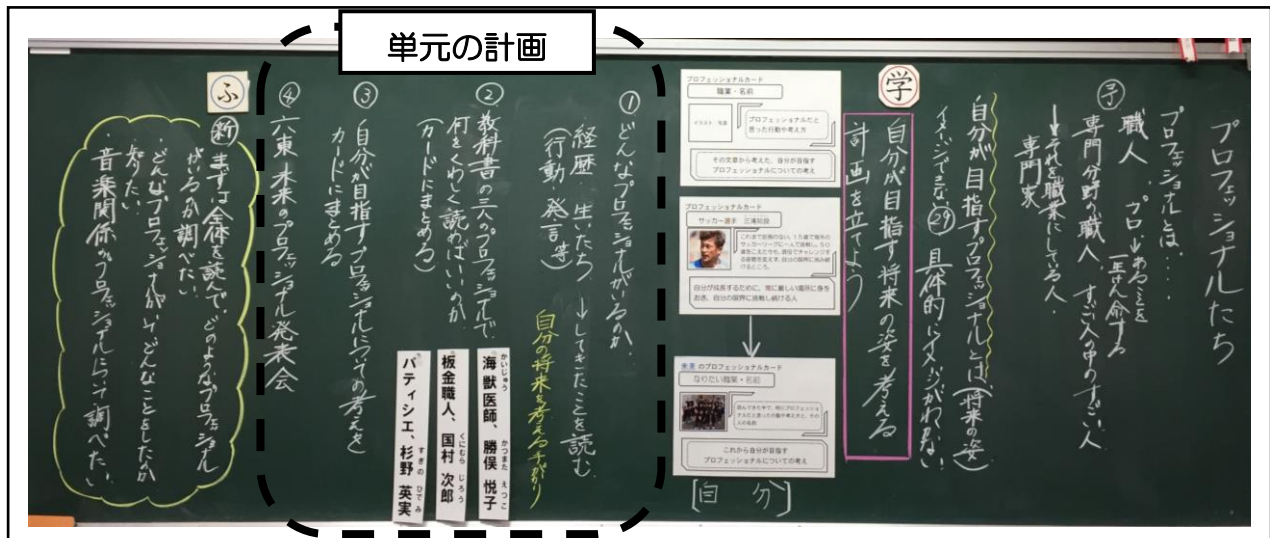 単元の計画
プロフェッショナルたち
プロフェッショナルとは・・・
職人 プロ
予
専門分野の職人 すごい人の中のすごい人
→それを職業にしている人
専門家
自分が目指すプロフェッショナルとは(将来の姿)
イメージできない 29 具体的にイメージがわかない
学
自分が目指す将来の姿を考える
計画を立てよう
プロフェッショナルカード
職業・名前
イラスト・写真
プロフェッショナルだと
思った行動や考え方
その文章から考えた、自分が目指す
プロフェッショナルについての考え
プロフェッショナルカード
サッカー選手 三浦知良
自分が成長するために、常に厳しい場所に身を
おき、自分の限界に挑戦し続ける人
未来のプロフェッショナルカード
なりたい職業・名前
これから自分が目指す
プロフェッショナルについての考え
[自分]
① どんなプロフェッショナルがいるか
経歴・生いたち →してきたことを読む
(行動・発言等)
自分の将来を考える手がかり
② 教科書の三人のプロフェッショナルで
何をくわしく読めばいいのか
(カードにまとめる)
海獣医師、勝俣 悦子
かいじゅう かつまた えつこ
板金職人、国村 次郎
くにむら じろう
パティシエ、杉野 英実
すぎの ひでみ
③ 自分が目指すプロフェッショナルについての考えを
カードにまとめる
④ 六東 未来のプロフェッショナル発表会
ふ
新 まずは全体を読んで、どのようなプロフェッショナル
がいるか調べたい
・どんなプロフェッショナルがいて、どんなことをしたか
知りたい
・音楽関係のプロフェッショナルについて調べたい